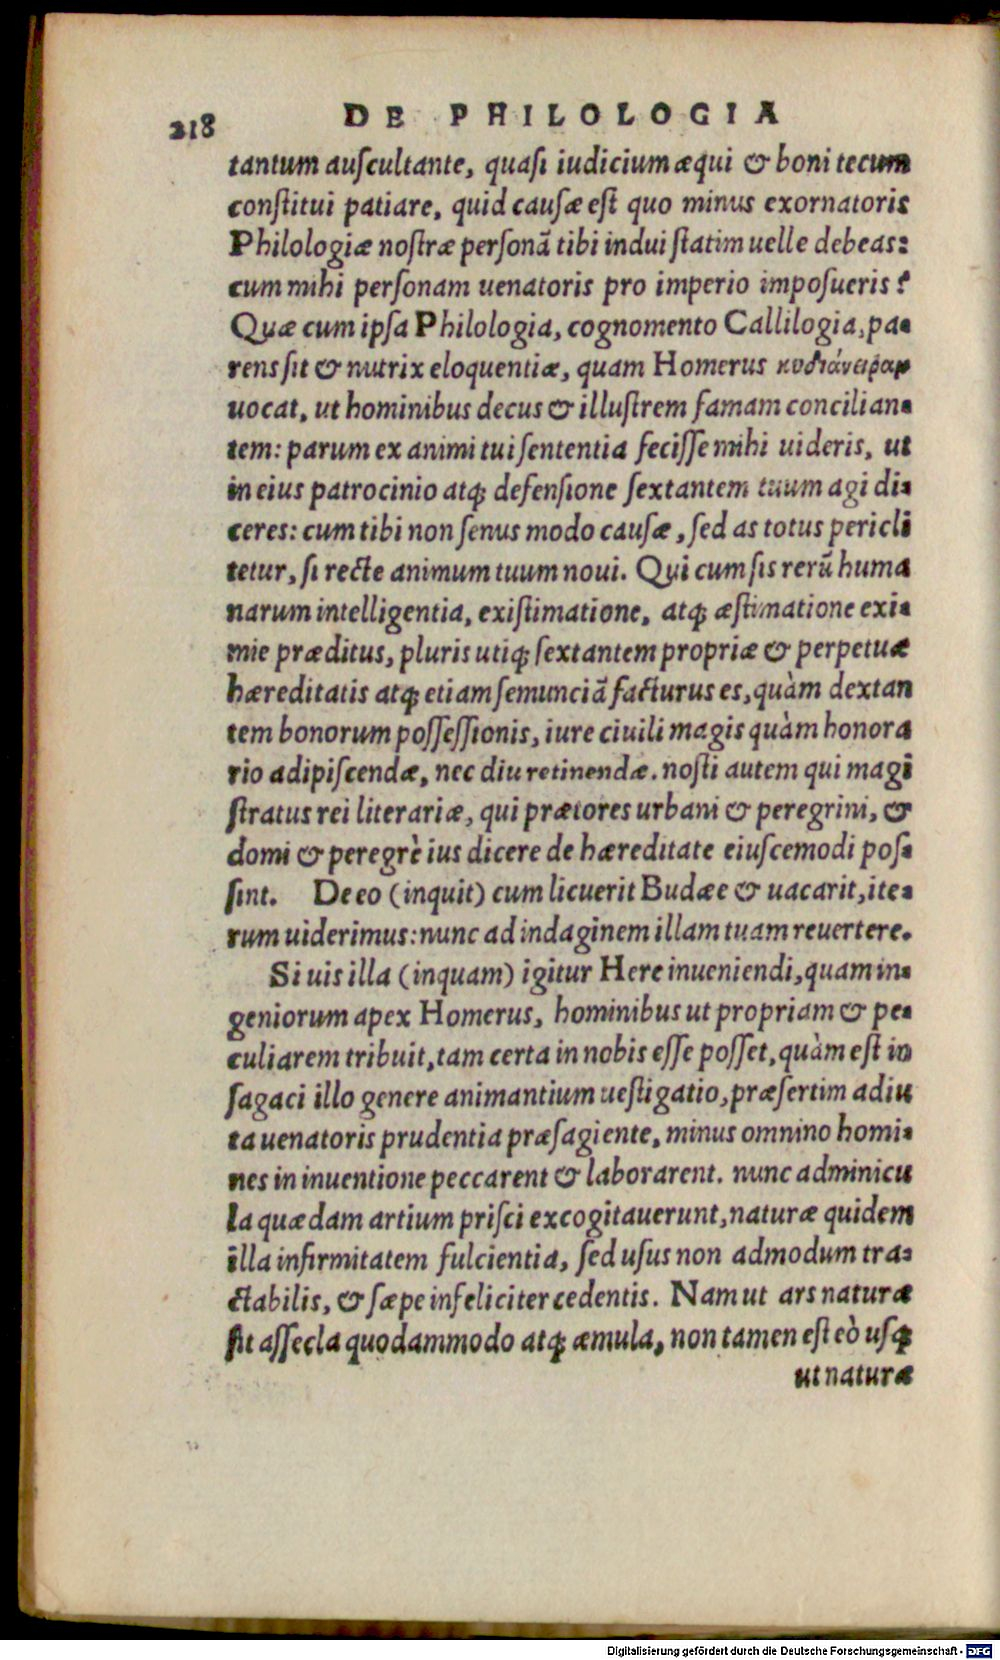 218 DE PHILOLOGIA
tantum auſcultante, quaſi iudicium æqui & boni tecum
conſtitui patiare, quid cauſæ eſt quo minus exornatoris
Philologiæ noſtræ perſonã tibi indui ſtatim uelle debeas:
cum mihi perſonam uenatoris pro imperio impoſueris?
Quæ cum ipſa Philologia, cognomento Callilogia, pa-
rens ſit & nutrix eloquentiæ, quam Homerus κυδιάνειραν
uocat, ut hominibus decus & illuſtrem famam concilian-
tem: parum ex animi tui ſententia feciſſe mihi uideris, ut
in eius patrocinio atq; defenſione ſextantem tuum agi di-
ceres: cum tibi non ſenus modo cauſæ, ſed as totus pericli
tetur, ſi recte animum tuum noui. Qui cum ſis rerũ huma
narum intelligentia, exiſtimatione, atq; æſtimatione exi-
mie præditus, pluris utiq; ſextantem propriæ & perpetuæ
hæreditatis atq; etiam ſemunciã facturus es, quàm dextan
tem bonorum poſſeſſionis, iure ciuili magis quàm honora
rio adipiſcendæ, nec diu retinendæ. noſti autem qui magi
ſtratus rei literariæ, qui prætores urbani & peregrini, &
domi & peregrè ius dicere de hæreditate eiuſcemodi poſ-
ſint. De eo (inquit) cum licuerit Budæe & uacarit, ite-
rum uiderimus: nunc ad indaginem illam tuam reuertere.
Si uis illa (inquam) igitur Here inueniendi, quam in-
geniorum apex Homerus, hominibus ut propriam & pe-
culiarem tribuit, tam certa in nobis eſſe poſſet, quàm eſt in
ſagaci illo genere animantium ueſtigatio, præſertim adiu
ta uenatoris prudentia præſagiente, minus omnino homi-
nes in inuentione peccarent & laborarent. nunc adminicu
la quædam artium priſci excogitauerunt, naturæ quidem
illa infirmitatem fulcientia, ſed uſus non admodum tra-
ctabilis, & ſæpe infeliciter cedentis. Nam ut ars naturæ
ſit aſſecla quodammodo atq; æmula, non tamen eſt eò uſq;
ut naturæ
Digitalisierung gefördert durch die Deutsche Forschungsgemeinschaft - DFG